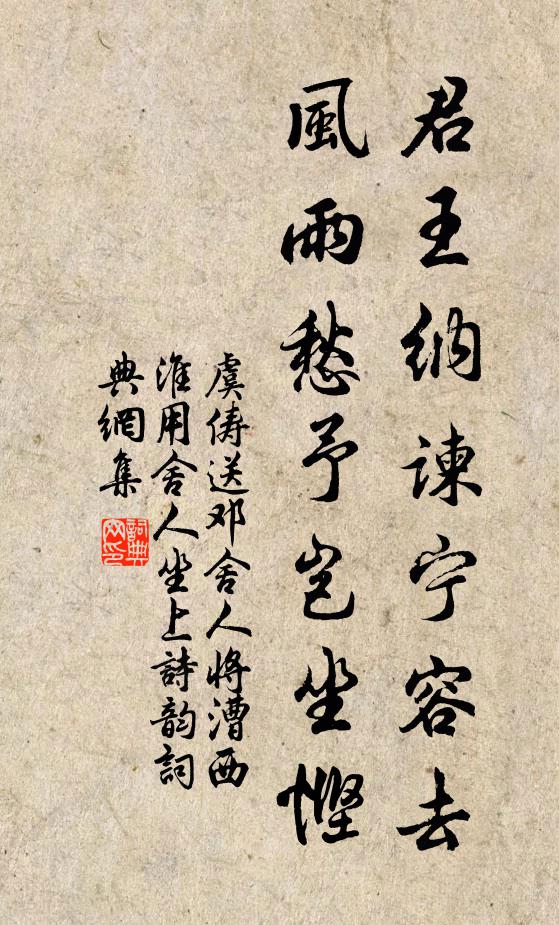 君王纳谏宁容去
風雨愁予岂坐慳
虞俦送邓舍人将漕西
淮用舍人坐上詩韵詞
典網集
詞典
网印